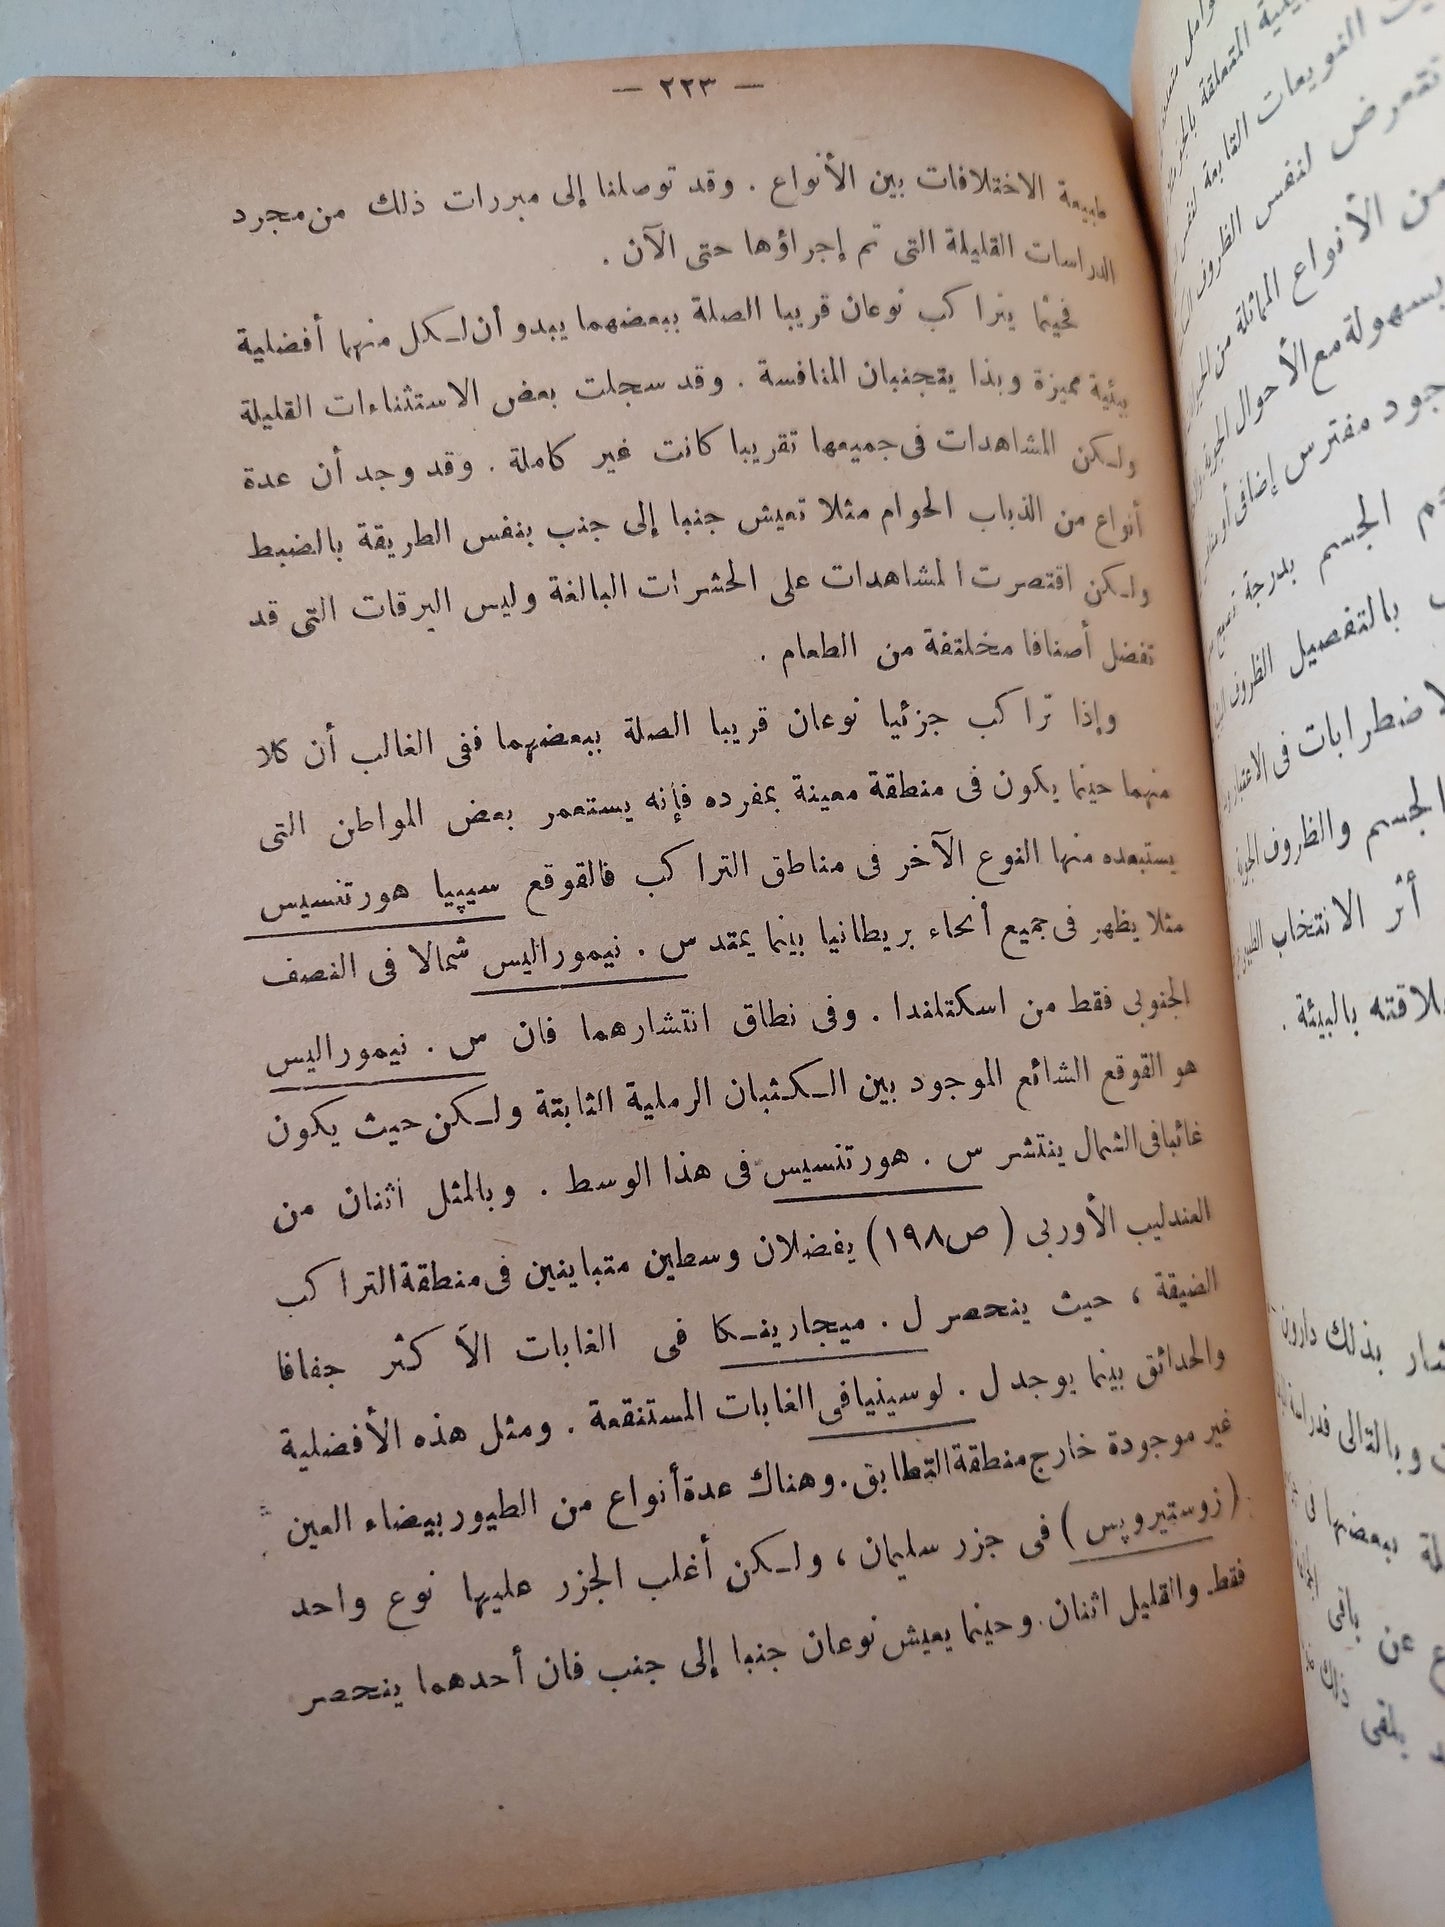 — ٢٢٣ —
طبيعة الاختلافات بين الأنواع . وقد توصلنا إلى مبررات ذلك من مجرد
الدراسات القليلة التى تم إجراؤها حتى الآن .
فحيثما يتراكب نوعان قريبا الصلة ببعضهما يبدو أن لكل منهما أفضلية
بيئية مميزة وبذا يتجنبان المنافسة . وقد سجلت بعض الاستثناءات القليلة
ولكن المشاهدات فى جميعها تقريبا كانت غير كاملة . وقد وجد أن عدة
أنواع من الذباب الحوام مثلا تعيش جنبا إلى جنب بنفس الطريقة بالضبط
ولكن اقتصرت المشاهدات على الحشرات البالغة وليس اليرقات التى قد
تفضل أصنافا مخلتفة من الطعام .
وإذا تراكب جزئيا نوعان قريبا الصلة ببعضهما ففى الغالب أن كلا
منهما حينما يكون فى منطقة معينة بمفرده فإنه يستعمر بعض المواطن التى
يستبعده منها النوع الآخر فى مناطق التراكب فالقوقع سيپيا هورتنسيس
مثلا يظهر فى جميع أنحاء بريطانيا بينما يمتد س . نيموراليس شمالا فى النصف
الجنوبى فقط من اسكتلندا . وفى نطاق انتشارهما فان س . نيموراليس
هو القوقع الشائع الموجود بين الكثبان الرملية الثابتة ولكن حيث يكون
غائبا فى الشمال ينتشر س . هورتنسيس فى هذا الوسط . وبالمثل اثنان من
العندليب الأوربى ( ص ١٩٨ ) يفضلان وسطين متباينين فى منطقة التراكب
الضيقة ، حيث ينحصر ل . ميجارينكا فى الغابات الأكثر جفافا
والحدائق بينما يوجد ل . لوسينيا فى الغابات المستنقعة . ومثل هذه الأفضلية
غير موجودة خارج منطقة التطابق . وهناك عدة أنواع من الطيور بيضاء العين
( زوستيروپس ) فى جزر سليمان ، ولكن أغلب الجزر عليها نوع واحد
فقط والقليل اثنان . وحينما يعيش نوعان جنبا إلى جنب فان أحدهما ينحصر
المتعلقة
النويعات التابعة لنفس
تتعرض لنفس الظروف
من الأنواع المماثلة من
بسهولة مع الأحوال الجوية
مفترس إضافى أو
الجسم بدرجة
بالتفصيل الظروف
فى الاعتبار
الجسم والظروف
أثر الانتخاب
بالبيئة .
بذلك دارون
وبالتالى فدراسة
ببعضها
عن باقى
يلقى ذلك